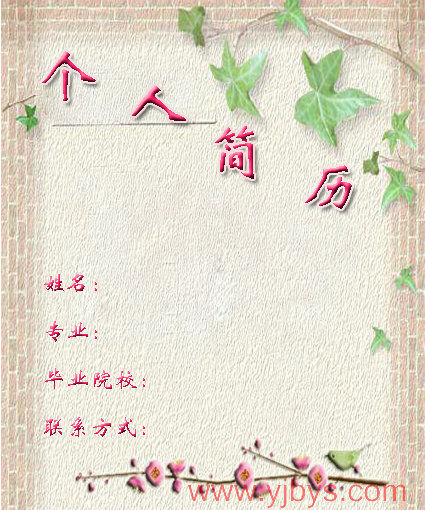 个人简历
姓名：
专业：
毕业院校：
联系方式：
www.yjbys.com